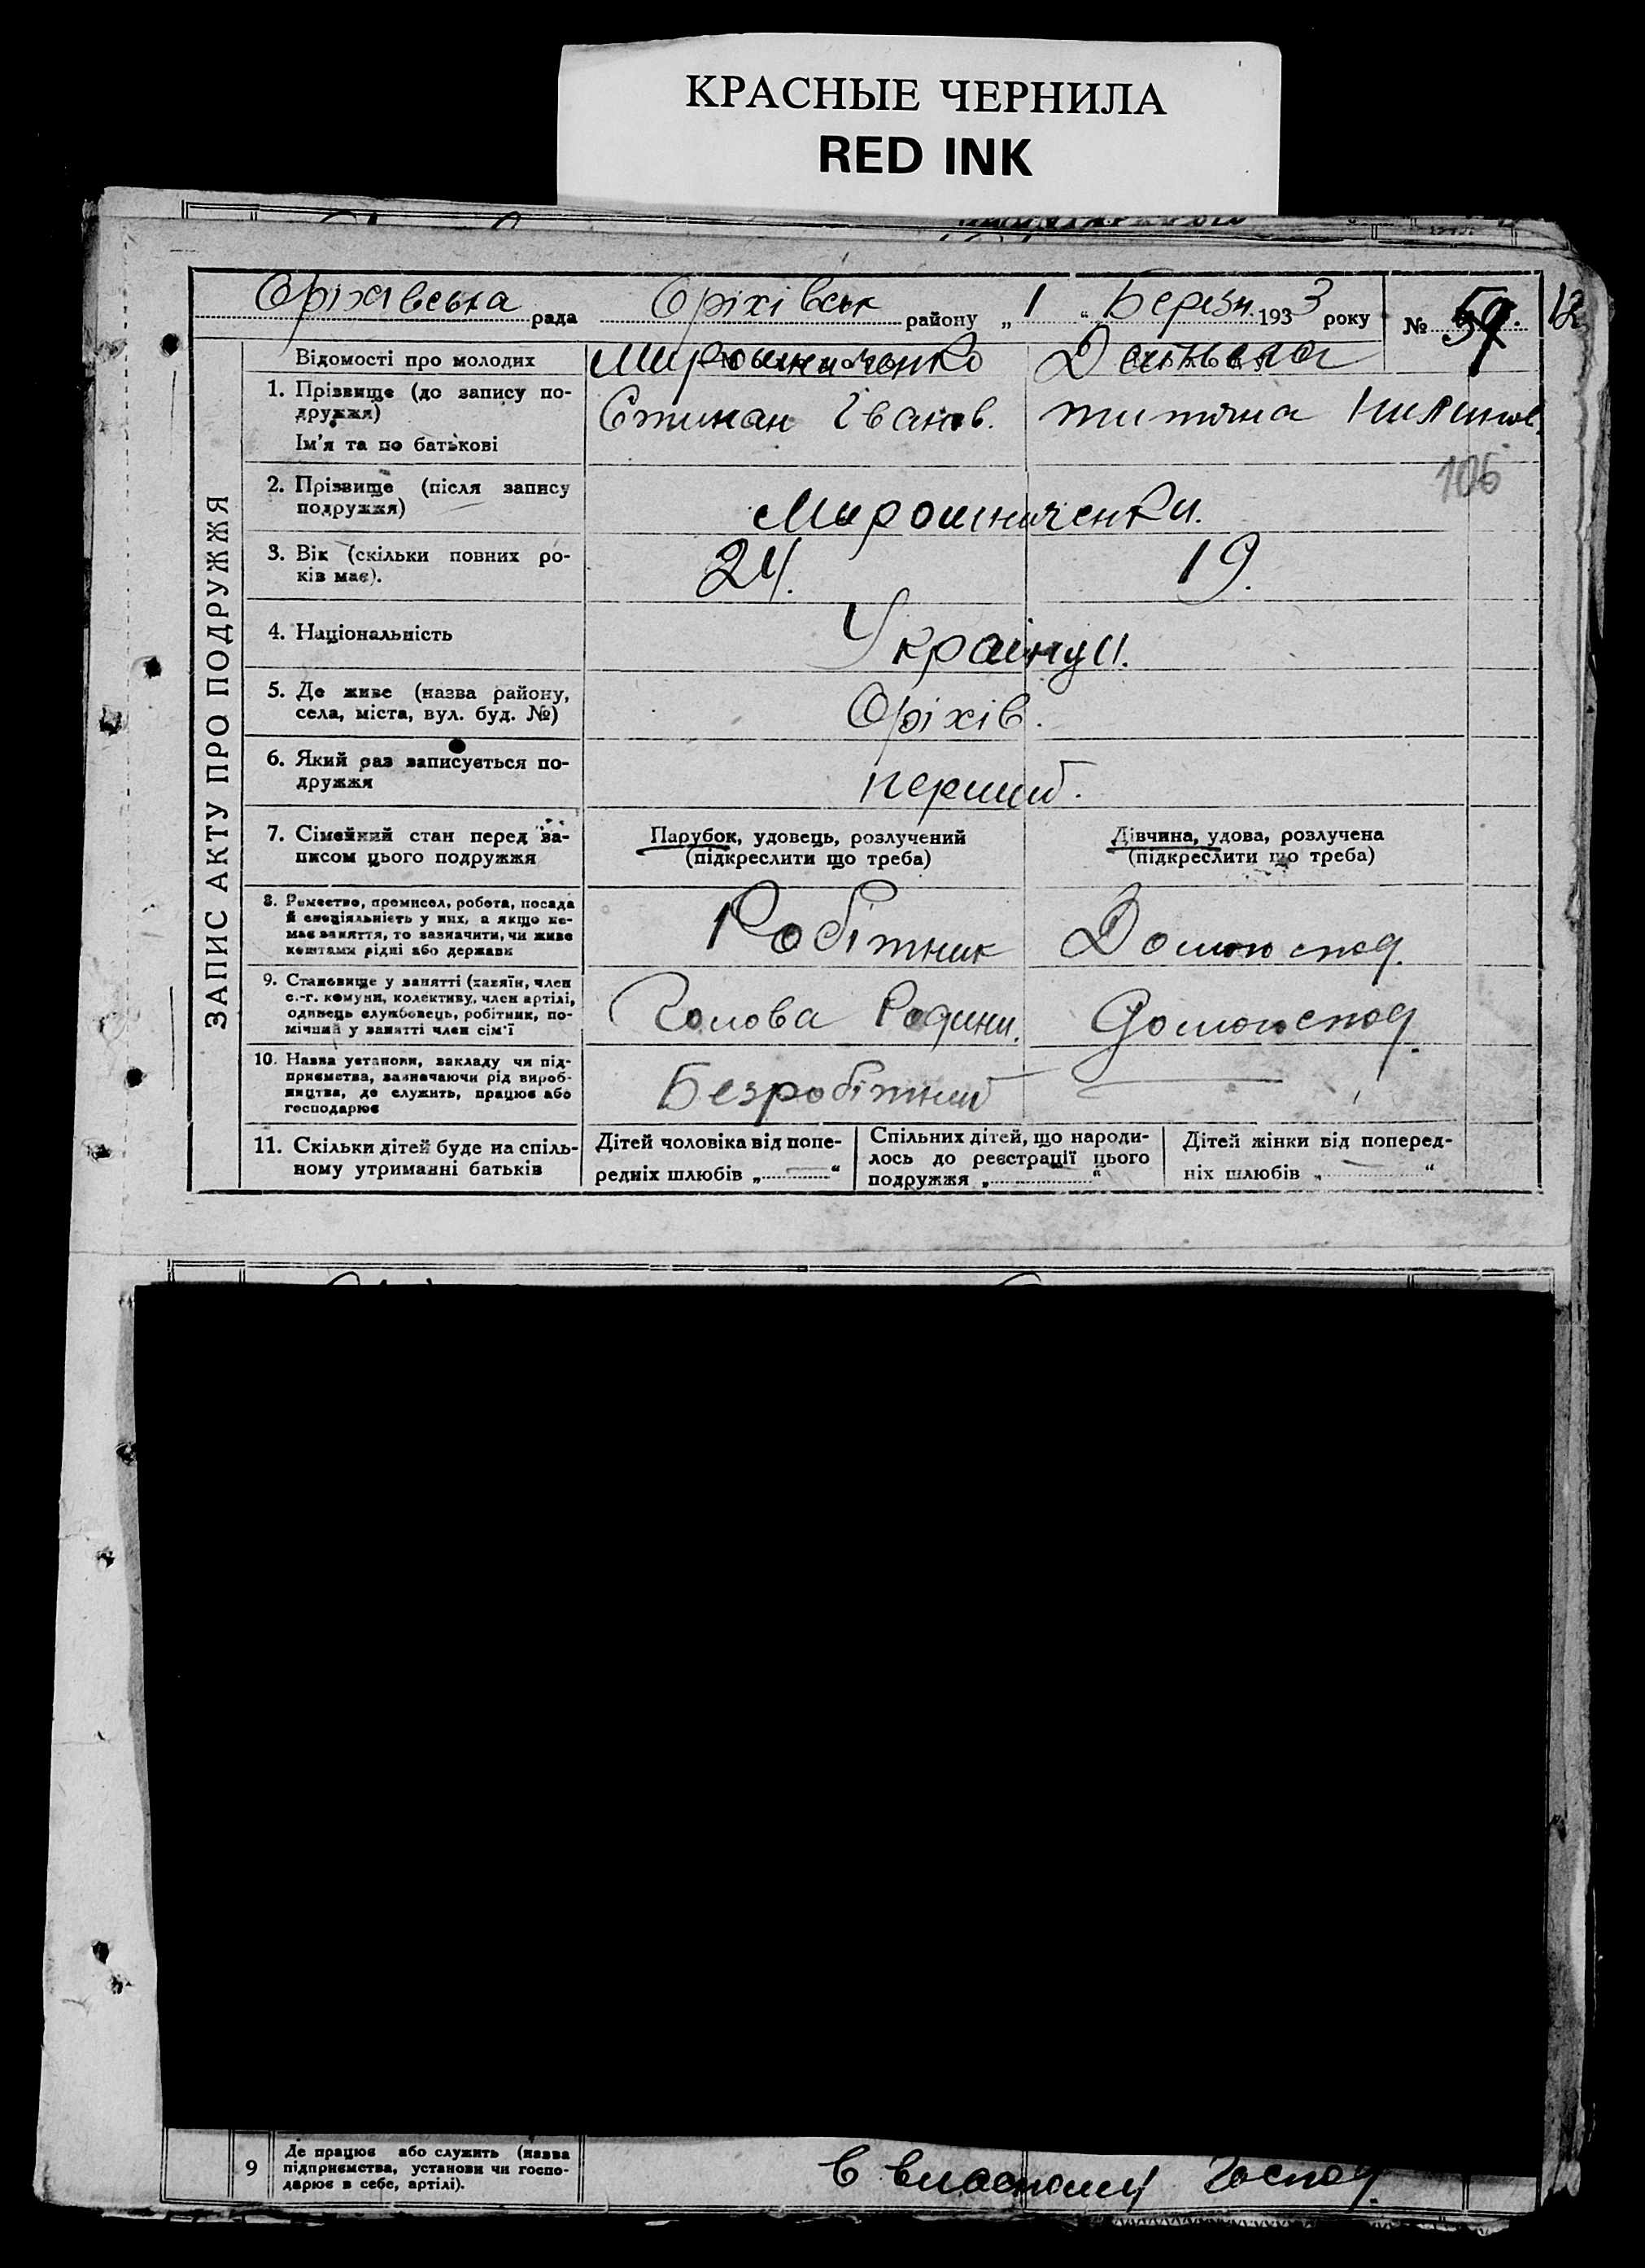 КРАСНЫЕ ЧЕРНИЛА
RED INK
Оріхівська рада Оріхівськ району „ 1 “ Березн. 1933 року №
ЗАПИС АКТУ ПРО ПОДРУЖЖЯ
Відомості про молодих
Мирошниченко
1. Прізвище (до запису по-
дружжя)
Ім'я та по батькові
Степан Іванов.
2. Прізвище (після запису
подружжя)
Мирошниченки.
106
3. Вік (скільки повних ро-
ків має).
24. 19.
4. Національність
Українці.
5. Де живе (назва району,
села, міста, вул. буд. №)
Оріхів.
6. Який раз записується по-
дружжя
перший.
7. Сімейний стан перед за-
писом цього подружжя
Парубок, удовець, розлучений
(підкреслити що треба)
Дівчина, удова, розлучена
(підкреслити що треба)
8. Ремество, промисел, робота, посада
й спеціяльність у них, а якщо не-
має заняття, то зазначити, чи живе
коштами рідні або держави
Робітник Домогоспод.
9. Становище у занятті (хазяїн, член
с.-г. комуни, колективу, член артілі,
одинець службовець, робітник, по-
мічний у занятті член сім'ї
Голова Родини. Домогоспод.
10. Назва установи, закладу чи під-
приємства, зазначаючи рід вироб-
ництва, де служить, працює або
господарює
Безробітний
11. Скільки дітей буде на спіль-
ному утриманні батьків
Дітей чоловіка від попе-
редніх шлюбів „ “
Спільних дітей, що народи-
лось до реєстрації цього
подружжя „ “
Дітей жінки від поперед-
ніх шлюбів „ “
9 Де працює або служить (назва
підприємства, установи чи госпо-
дарює в себе, артілі).
в власному господ.